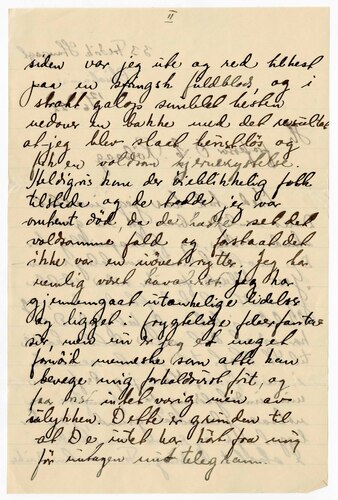 II
siden var jeg ute og red tilhest
paa en spansk fuldblods, og i
strakt galop snublet hesten
nedover en bakke med det resultat
at jeg blev slaat bevistløs og
fik en voldsom hjernerystelse.
Heldigvis kom der øieblikkelig folk
tilstede og de trodde jeg var
omtrent død, da de hadde set det
voldsomme fald og forstaat det
ikke var en uøvet rytter. Jeg har
nemlig været kavalerist. Jeg har
gjennemgaat utænkelige lidelser
og ligget i frygtelige feberfantasi
er, men nu er jeg et meget
fornøid menneske som atter kan
bevæge mig forholdsvist frit, og
faa vist intet varig men av
ulykken. Dette er grunden til
at De intet har hørt fra mig
för undtagen mit telegram.